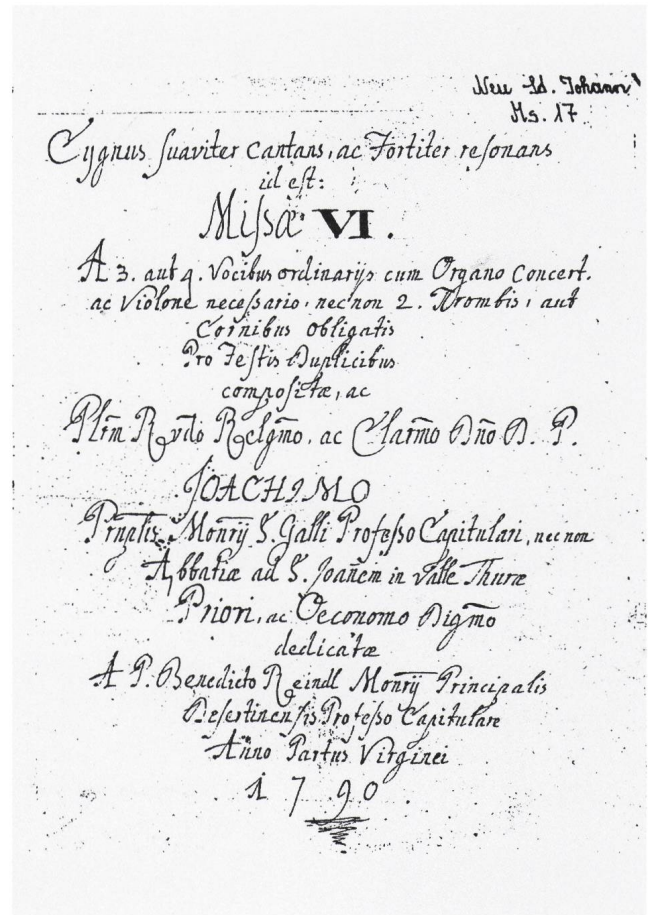 Neu St. Johann
Ms. 17
Cygnus suaviter cantans, ac Fortiter resonans
id est:
Missæ VI.
A 3. aut 4. Vocibus ordinarijs cum Organo Concert.
ac Violone necessario, necnon 2. Trombis, aut
Cornibus obligatis
Pro Festis Duplicibus
compositæ, ac
Plrm̄ Rvdō Relgmō, ac Clarmō Dñō D. P.
JOACHIMO
Prnplis Monrij S. Galli Professo Capitulari, nec non
Abbatiæ ad S. Joañem in valle Thuræ
Priori, ac Oeconomo Digmō
dedicatæ
A P. Benedicto Reindl Monrij Principalis
Desertinensis Professo Capitulare
Anno Partus Virginei
1790